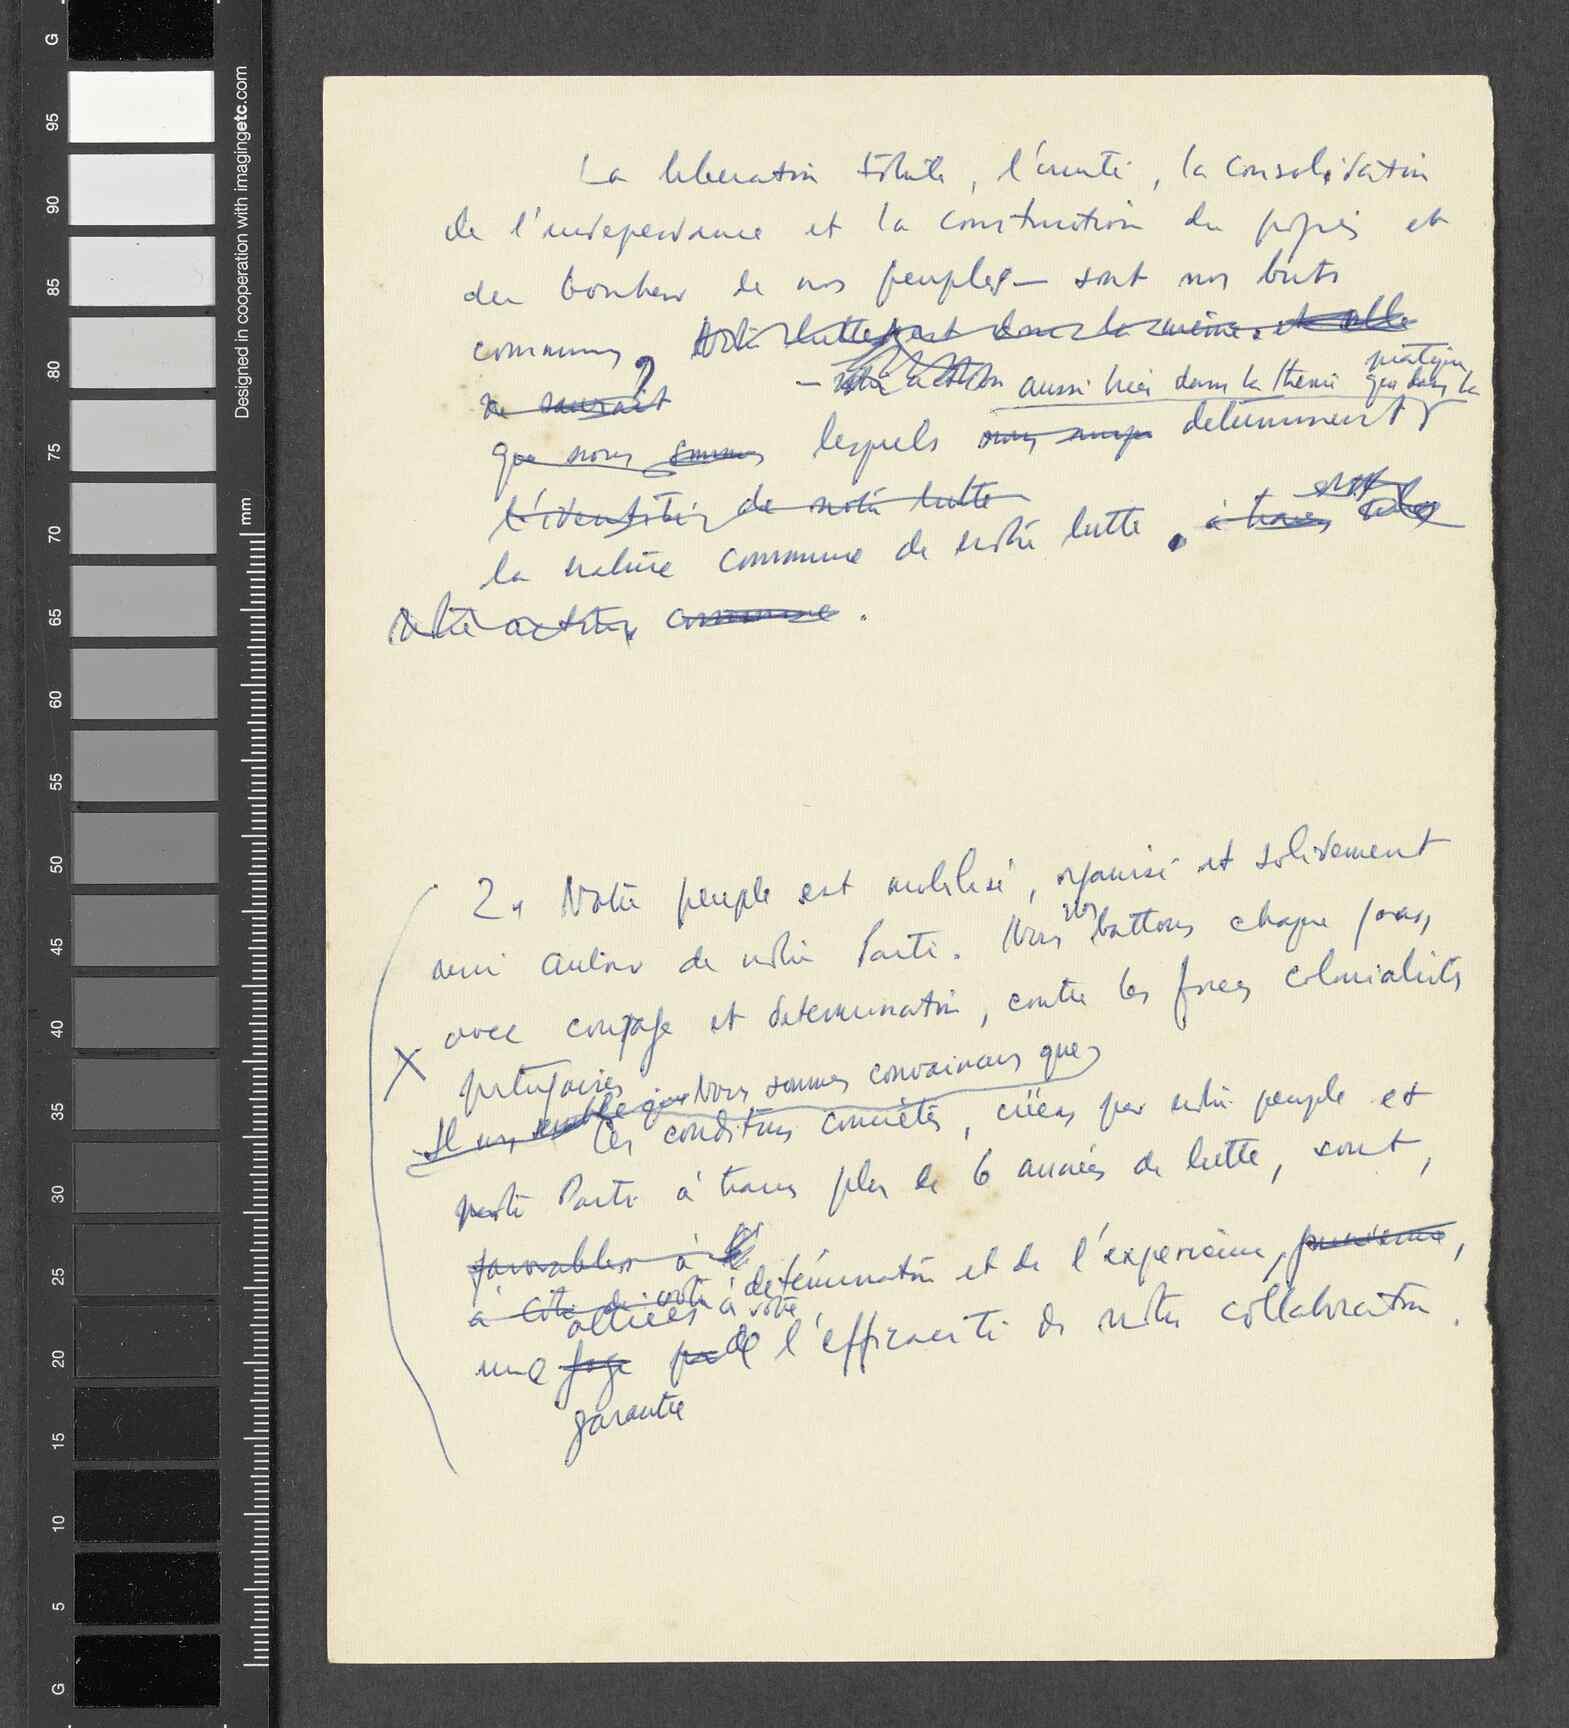 La liberation totale, l'unité, la consolidation
de l'independance et la construction du progrès et
du bonheur de nos peuples — sont nos buts
communs, Notre lutte est donc la même. et elle
ne saurait
— notre action aussi bien dans la théorie que dans la
pratique
que nous sommes lesquels determinent
l'identité de notre lutte
la nature commune de notre lutte. à travers
notre action commune.
2. Notre peuple est mobilisé, organisé et solidement
uni autour de notre Parti. Nous nous battons chaque jour,
avec courage et determination, contre les forces colonialistes
X
portugaises
Il nous semble que Nous sommes convaincus que
les conditions concrètes, créées par notre peuple et
notre Parti à travers plus de 6 années de lutte, sont,
favorables à
à côté de votre à determination et de l'experience,
alliées à votre
une gage de l'efficacité de notre collaboration.
garantie
G
95
90
85
80
75
70
65
60
55
50
45
40
35
30
25
20
15
10
5
G
Designed in cooperation with imagingetc.com
mm